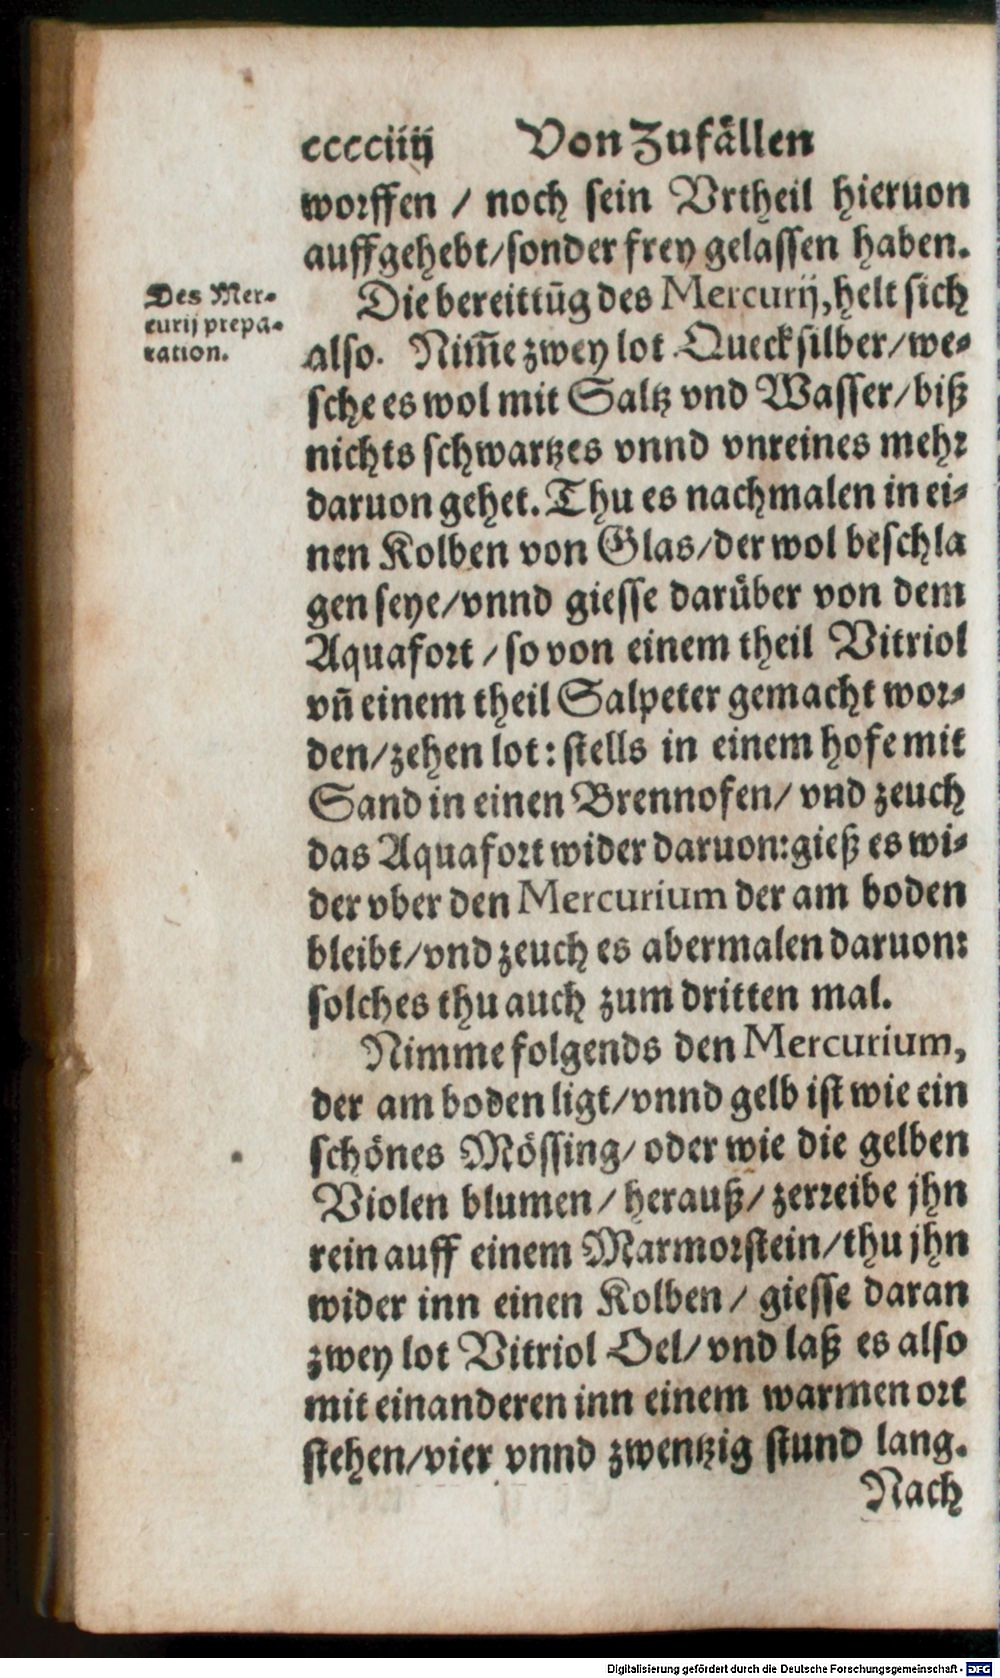 cccciiij Von Zufällen
worffen / noch sein Vrtheil hieruon
auffgehebt/sonder frey gelassen haben.
Des Mer-
curij prepa-
ration.
Die bereittūg des Mercurij, helt sich
also. Nim̄e zwey lot Quecksilber/we-
sche es wol mit Saltz vnd Wasser/biß
nichts schwartzes vnnd vnreines mehr
daruon gehet. Thu es nachmalen in ei-
nen Kolben von Glas/der wol beschla
gen seye/vnnd giesse darüber von dem
Aquafort / so von einem theil Vitriol
vn̄ einem theil Salpeter gemacht wor-
den/zehen lot: stells in einem hofe mit
Sand in einen Brennofen/ vnd zeuch
das Aquafort wider daruon: gieß es wi-
der vber den Mercurium der am boden
bleibt/vnd zeuch es abermalen daruon:
solches thu auch zum dritten mal.
Nimme folgends den Mercurium,
der am boden ligt/vnnd gelb ist wie ein
schönes Mössing/ oder wie die gelben
Violen blumen/ herauß/ zerreibe jhn
rein auff einem Marmorstein/thu jhn
wider inn einen Kolben/ giesse daran
zwey lot Vitriol Oel/ vnd laß es also
mit einanderen inn einem warmen ort
stehen/vier vnnd zwentzig stund lang.
Nach
Digitalisierung gefördert durch die Deutsche Forschungsgemeinschaft - DFG